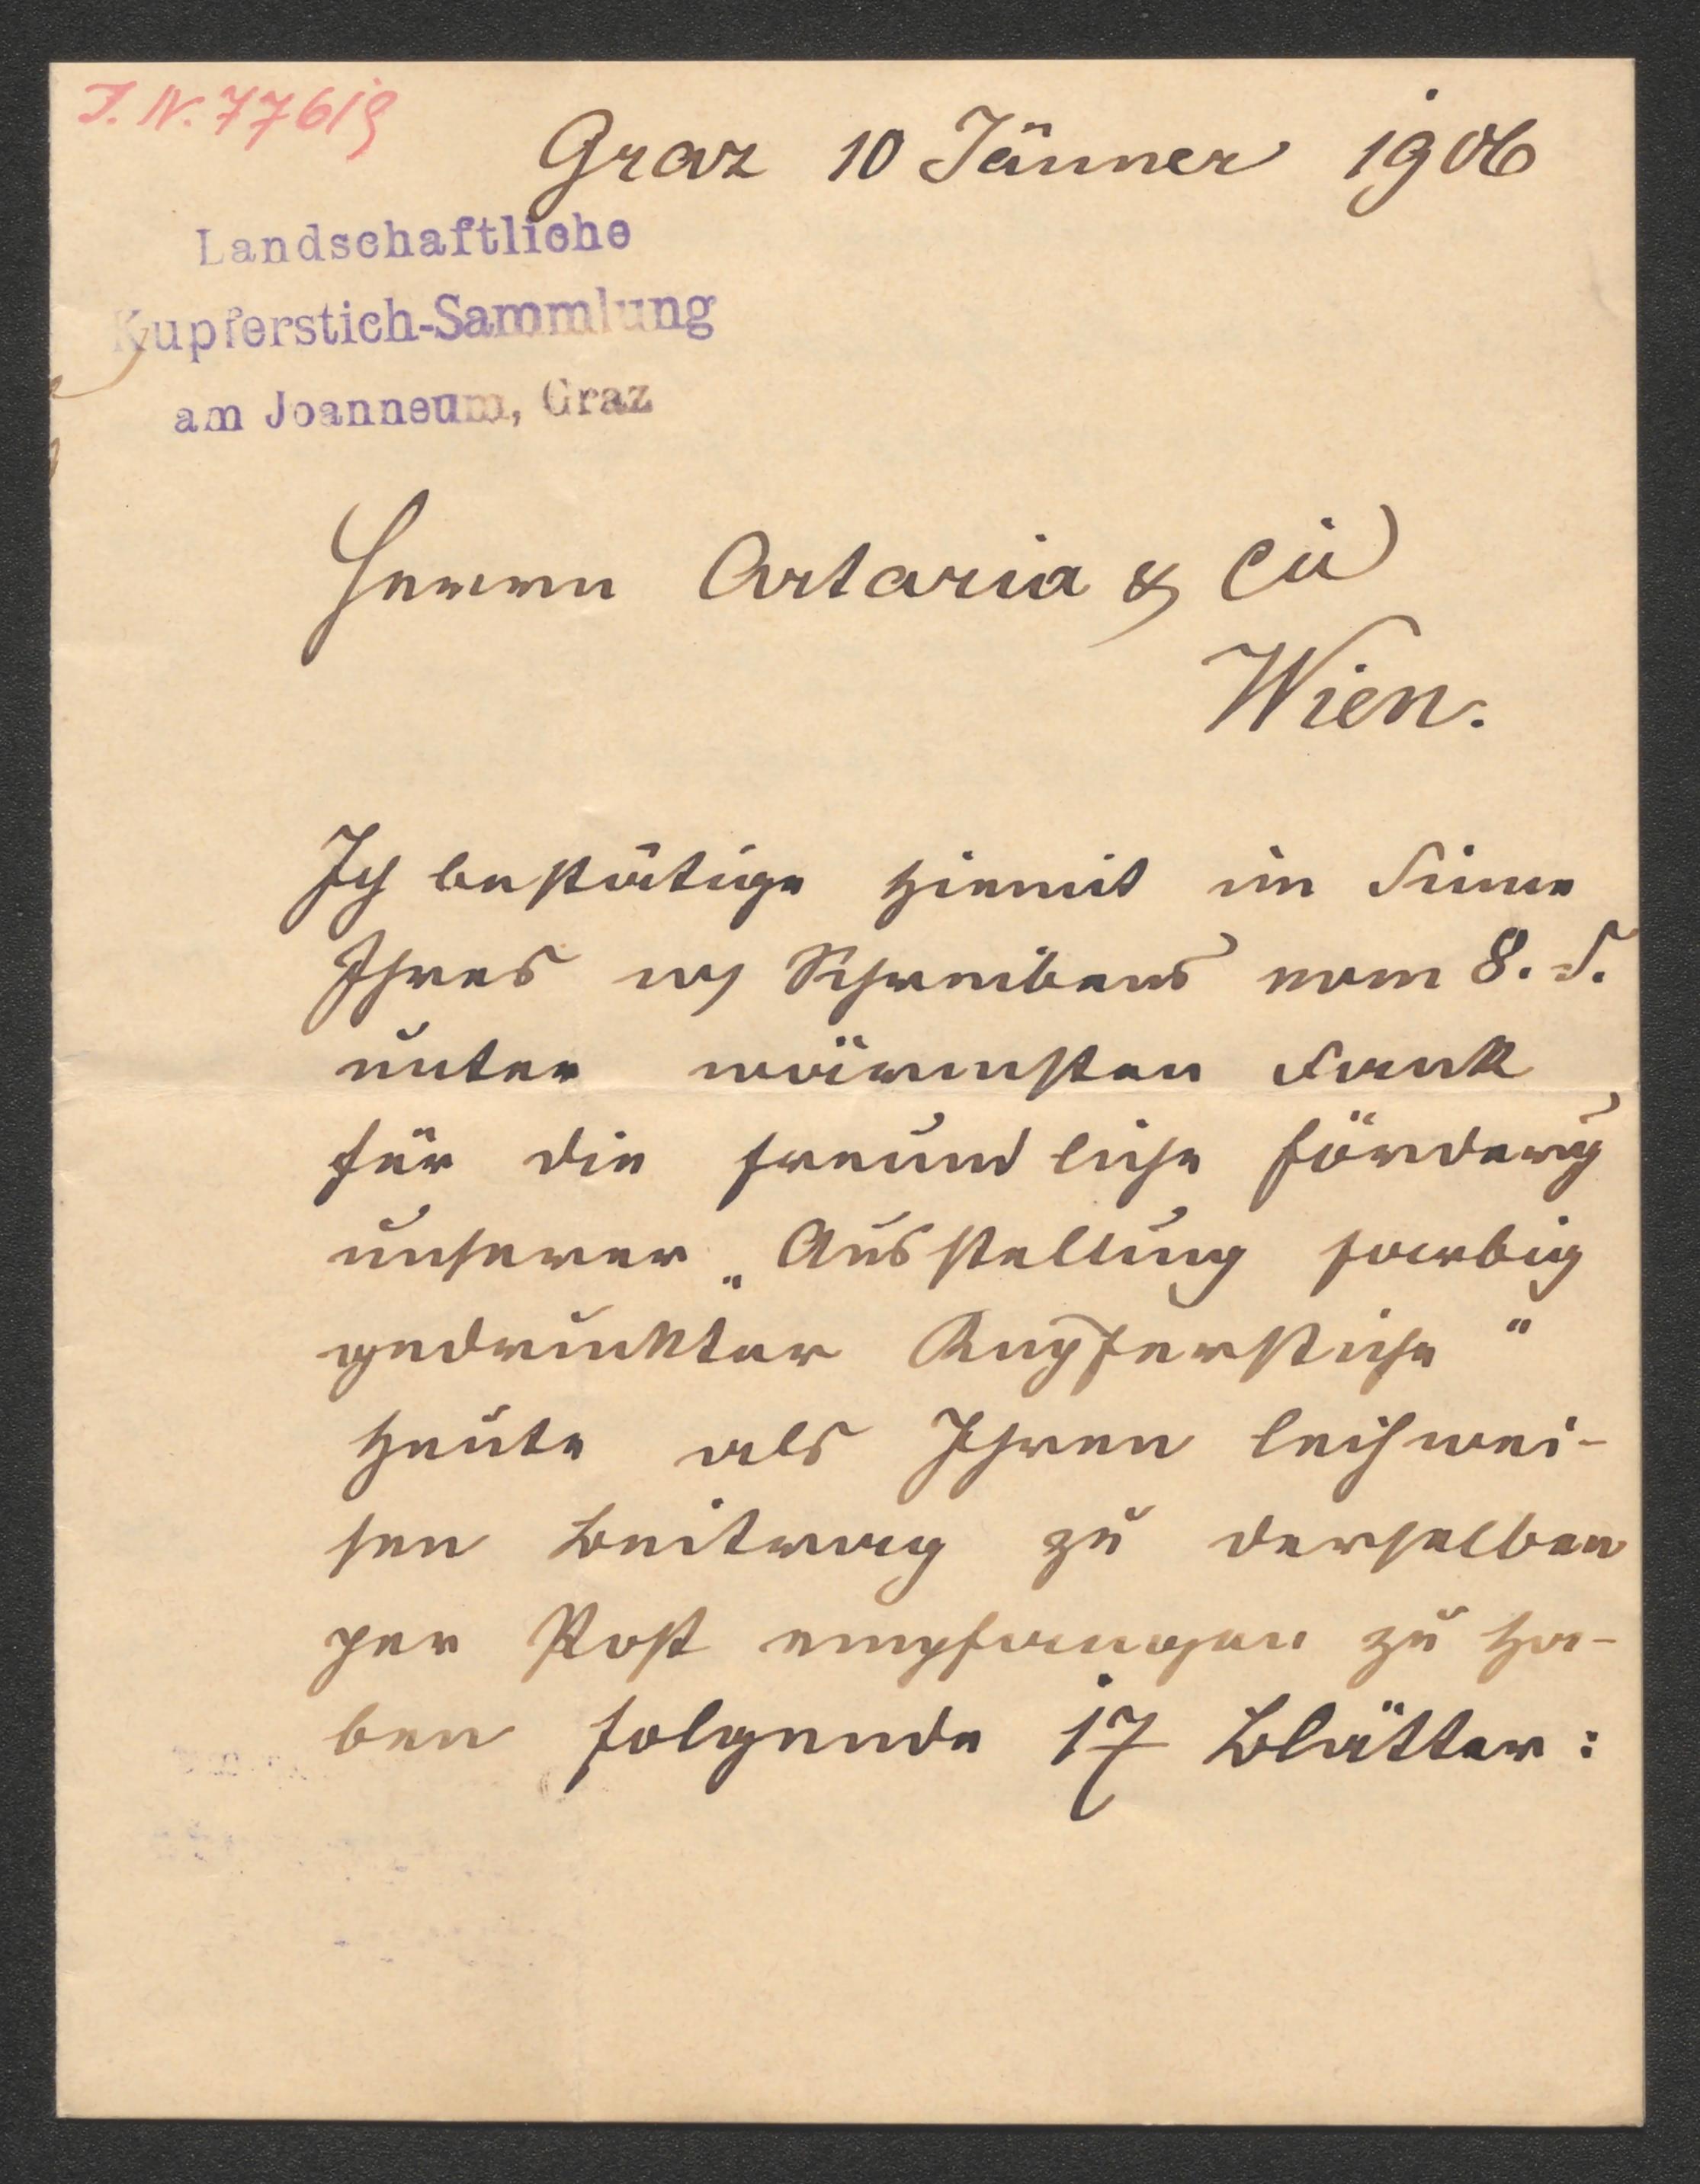 I. N. 77619
Graz 10 Jänner 1906
Landschaftliche
Kupferstich-Sammlung
am Joanneum, Graz
Herren Artaria & Cie
Wien.
Ich bestätige hiemit im Sinne
Ihres Schreibens vom 8. d.
unter wärmsten Dank
für die freundliche Förderung
unserer „Ausstellung farbig
gedruckter Kupferstiche“
heute als Ihren leihwei-
sen Beitrag zu derselben
per Post empfangen zu ha-
ben folgende 17 Blätter: